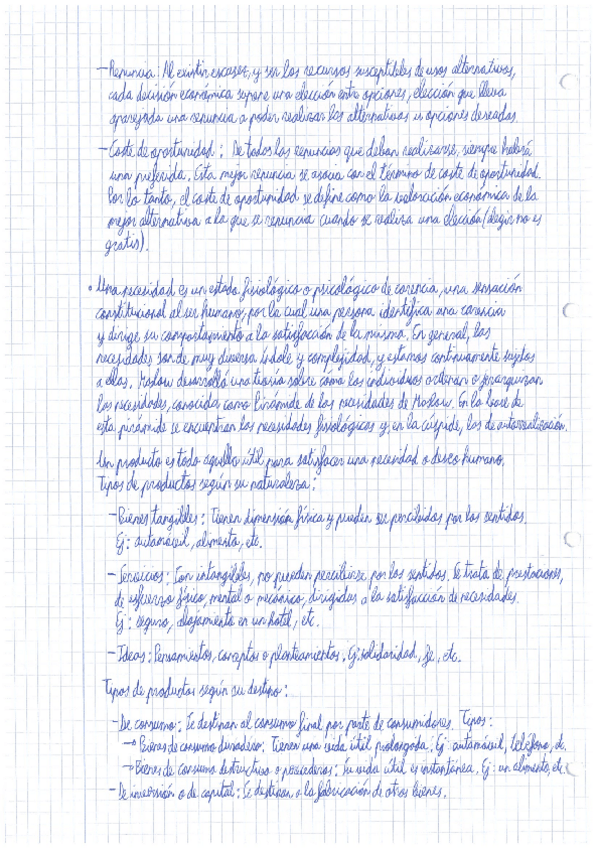 - Renuncia: Al existir escasez, y ser los recursos susceptibles de usos alternativos,
cada decisión económica supone una elección entre opciones, elección que lleva
aparejada una renuncia a poder realizar las alternativas u opciones deseadas.
- Coste de oportunidad: De todas las renuncias que deban realizarse, siempre habrá
una preferida. Esta mejor renuncia se asocia con el término de coste de oportunidad.
Por lo tanto, el coste de oportunidad se define como la valoración económica de la
mejor alternativa a la que se renuncia cuando se realiza una elección (elegir no es
gratis).
• Una necesidad es un estado fisiológico o psicológico de carencia, una sensación
constitucional al ser humano, por la cual una persona identifica una carencia
y dirige su comportamiento a la satisfacción de la misma. En general, las
necesidades son de muy diversa índole y complejidad, y estamos continuamente sujetos
a ellas. Maslow desarrolló una teoría sobre cómo los individuos ordenan o jerarquizan
las necesidades, conocida como Pirámide de las necesidades de Maslow. En la base de
esta pirámide se encuentran las necesidades fisiológicas y, en la cúspide, las de autorrealización.
Un producto es todo aquello útil para satisfacer una necesidad o deseo humano.
Tipos de productos según su naturaleza:
- Bienes tangibles: Tienen dimensión física y pueden ser percibidos por los sentidos.
Ej: automóvil, alimento, etc.
- Servicios: Son intangibles, no pueden percibirse por los sentidos. Se trata de prestaciones,
de esfuerzo físico, mental o mecánico, dirigidas a la satisfacción de necesidades.
Ej: seguro, alojamiento en un hotel, etc.
- Ideas: Pensamientos, conceptos o planteamientos. Ej: solidaridad, fe, etc.
Tipos de productos según su destino:
- De consumo: Se destinan al consumo final por parte de consumidores. Tipos:
→ Bienes de consumo duradero: Tienen una vida útil prolongada. Ej: automóvil, teléfono, etc.
→ Bienes de consumo destructivo o perecederos: Su vida útil es instantánea. Ej: un alimento, etc.
- De inversión o de capital: Se destinan a la fabricación de otros bienes.